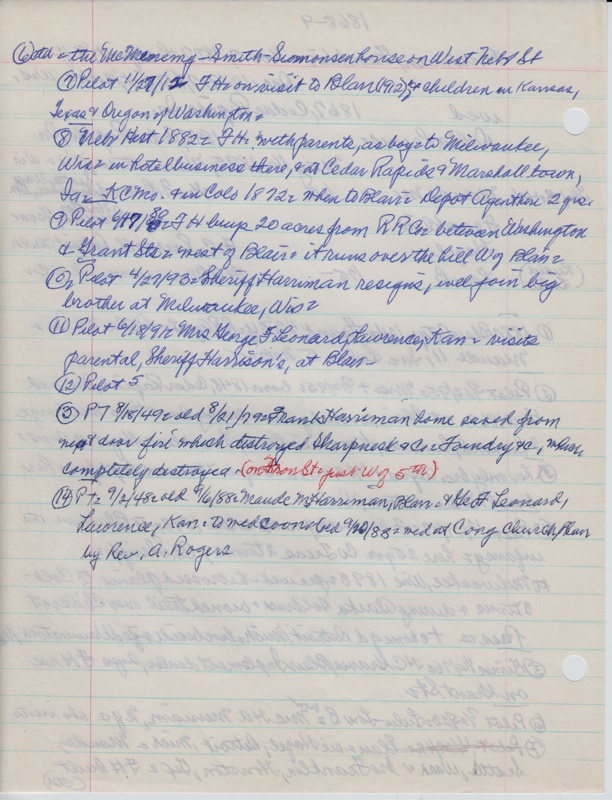 ⑥ old = the McMenemy-Smith-Simonsen house on West Neb St
⑦ Pilot 11/27/12 = F H on visit to Blair (1912) & children in Kansas,
Texas & Oregon or Washington =
⑧ Nebr Hist 1882 = F. H. with parents, as boy = to Milwaukee,
Wisc = in hotel business there, & at Cedar Rapids & Marshalltown,
Ia = KC Mo. & in Colo 1872 = when to Blair = Depot Agent here 2 yrs.
⑨ Pilot 6/17/80 = F H buys 20 acres from R R Co = between Washington
& Grant Sts = west of Blair = it runs over the hill W of Blair =
⑩ Pilot 4/27/93 = Sheriff Harriman resigns, will join big
brother at Milwaukee, Wis =
⑪ Pilot 6/18/91 = Mrs George F Leonard, Lawrence, Kan = visits
parental, Sheriff Harrison's, at Blair -
⑫ Pilot 5
⑬ P T 8/18/49 = old 8/21/79 = Frank Harriman home saved from
next door fire which destroyed Sharpneck & Co = Foundry &c, when
completely destroyed = (on Front St = just W of 5th)
⑭ P T = 9/2/48 = old 9/6/88 = Maude M Harriman, Blair = & Geo F Leonard,
Lawrence, Kan = to wed soon = wed 9/20/88 = wed at Cong Church, Blair
by Rev. A. Rogers